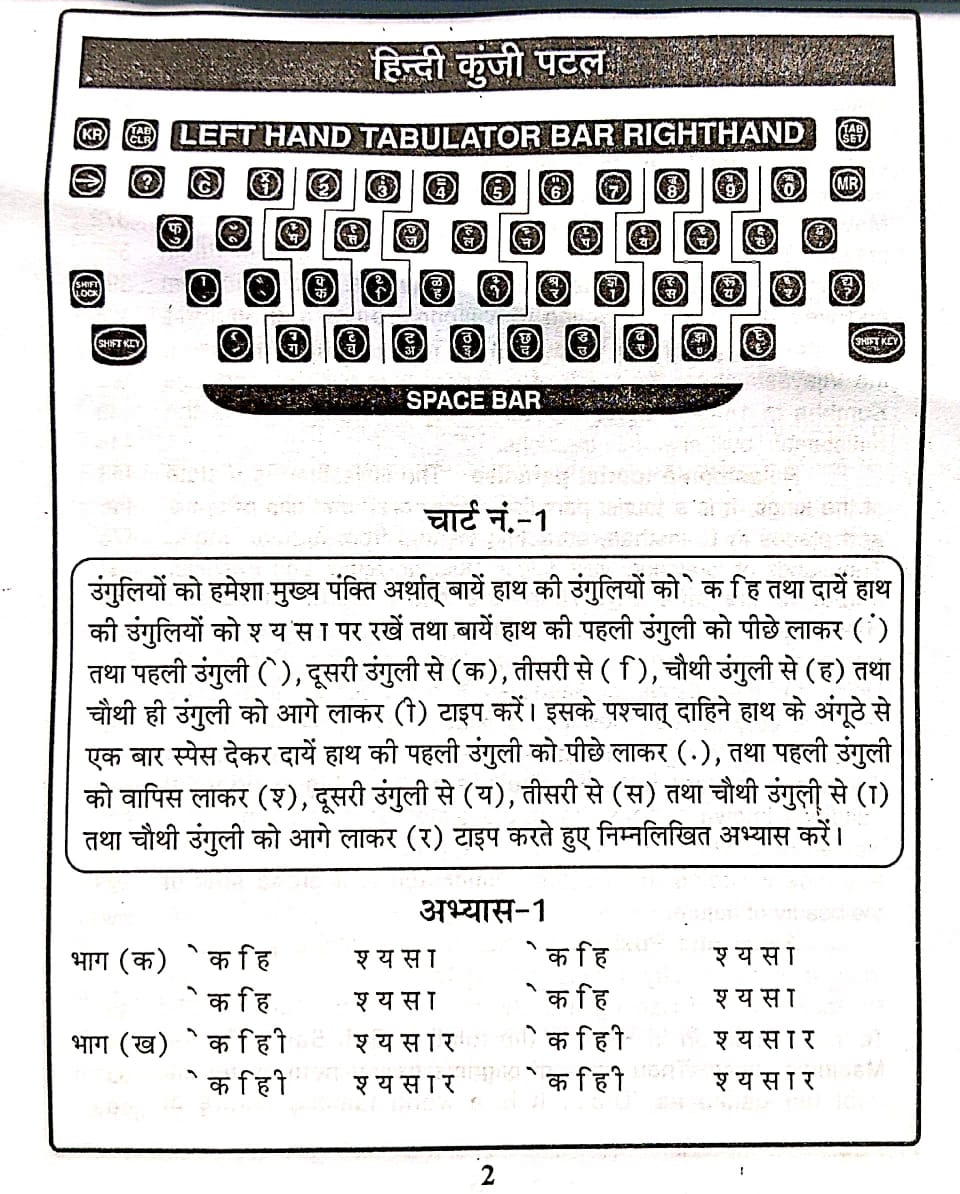 हिन्दी कुंजी पटल
KR TAB CLR LEFT HAND TABULATOR BAR RIGHTHAND TAB SET
? 1 2 3 4 5 6 7 8 9 0 MR
SHIFT LOCK
SHIFT KEY SHIFT KEY
SPACE BAR
चार्ट नं.-1
उंगुलियों को हमेशा मुख्य पंक्ति अर्थात् बायें हाथ की उंगुलियों को े क ि ह तथा दायें हाथ
की उंगुलियों को श् य स ा पर रखें तथा बायें हाथ की पहली उंगुली को पीछे लाकर (ं)
तथा पहली उंगुली (े), दूसरी उंगुली से (क), तीसरी से (ि), चौथी उंगुली से (ह) तथा
चौथी ही उंगुली को आगे लाकर (ी) टाइप करें। इसके पश्चात् दाहिने हाथ के अंगूठे से
एक बार स्पेस देकर दायें हाथ की पहली उंगुली को पीछे लाकर (.), तथा पहली उंगुली
को वापिस लाकर (श्), दूसरी उंगुली से (य), तीसरी से (स) तथा चौथी उंगुली से (ा)
तथा चौथी उंगुली को आगे लाकर (र) टाइप करते हुए निम्नलिखित अभ्यास करें।
अभ्यास-1
भाग (क) े क ि ह श् य स ा े क ि ह श् य स ा
े क ि ह श् य स ा े क ि ह श् य स ा
भाग (ख) े क ि ह ी श् य स ा र े क ि ह ी श् य स ा र
े क ि ह ी श् य स ा र े क ि ह ी श् य स ा र
2